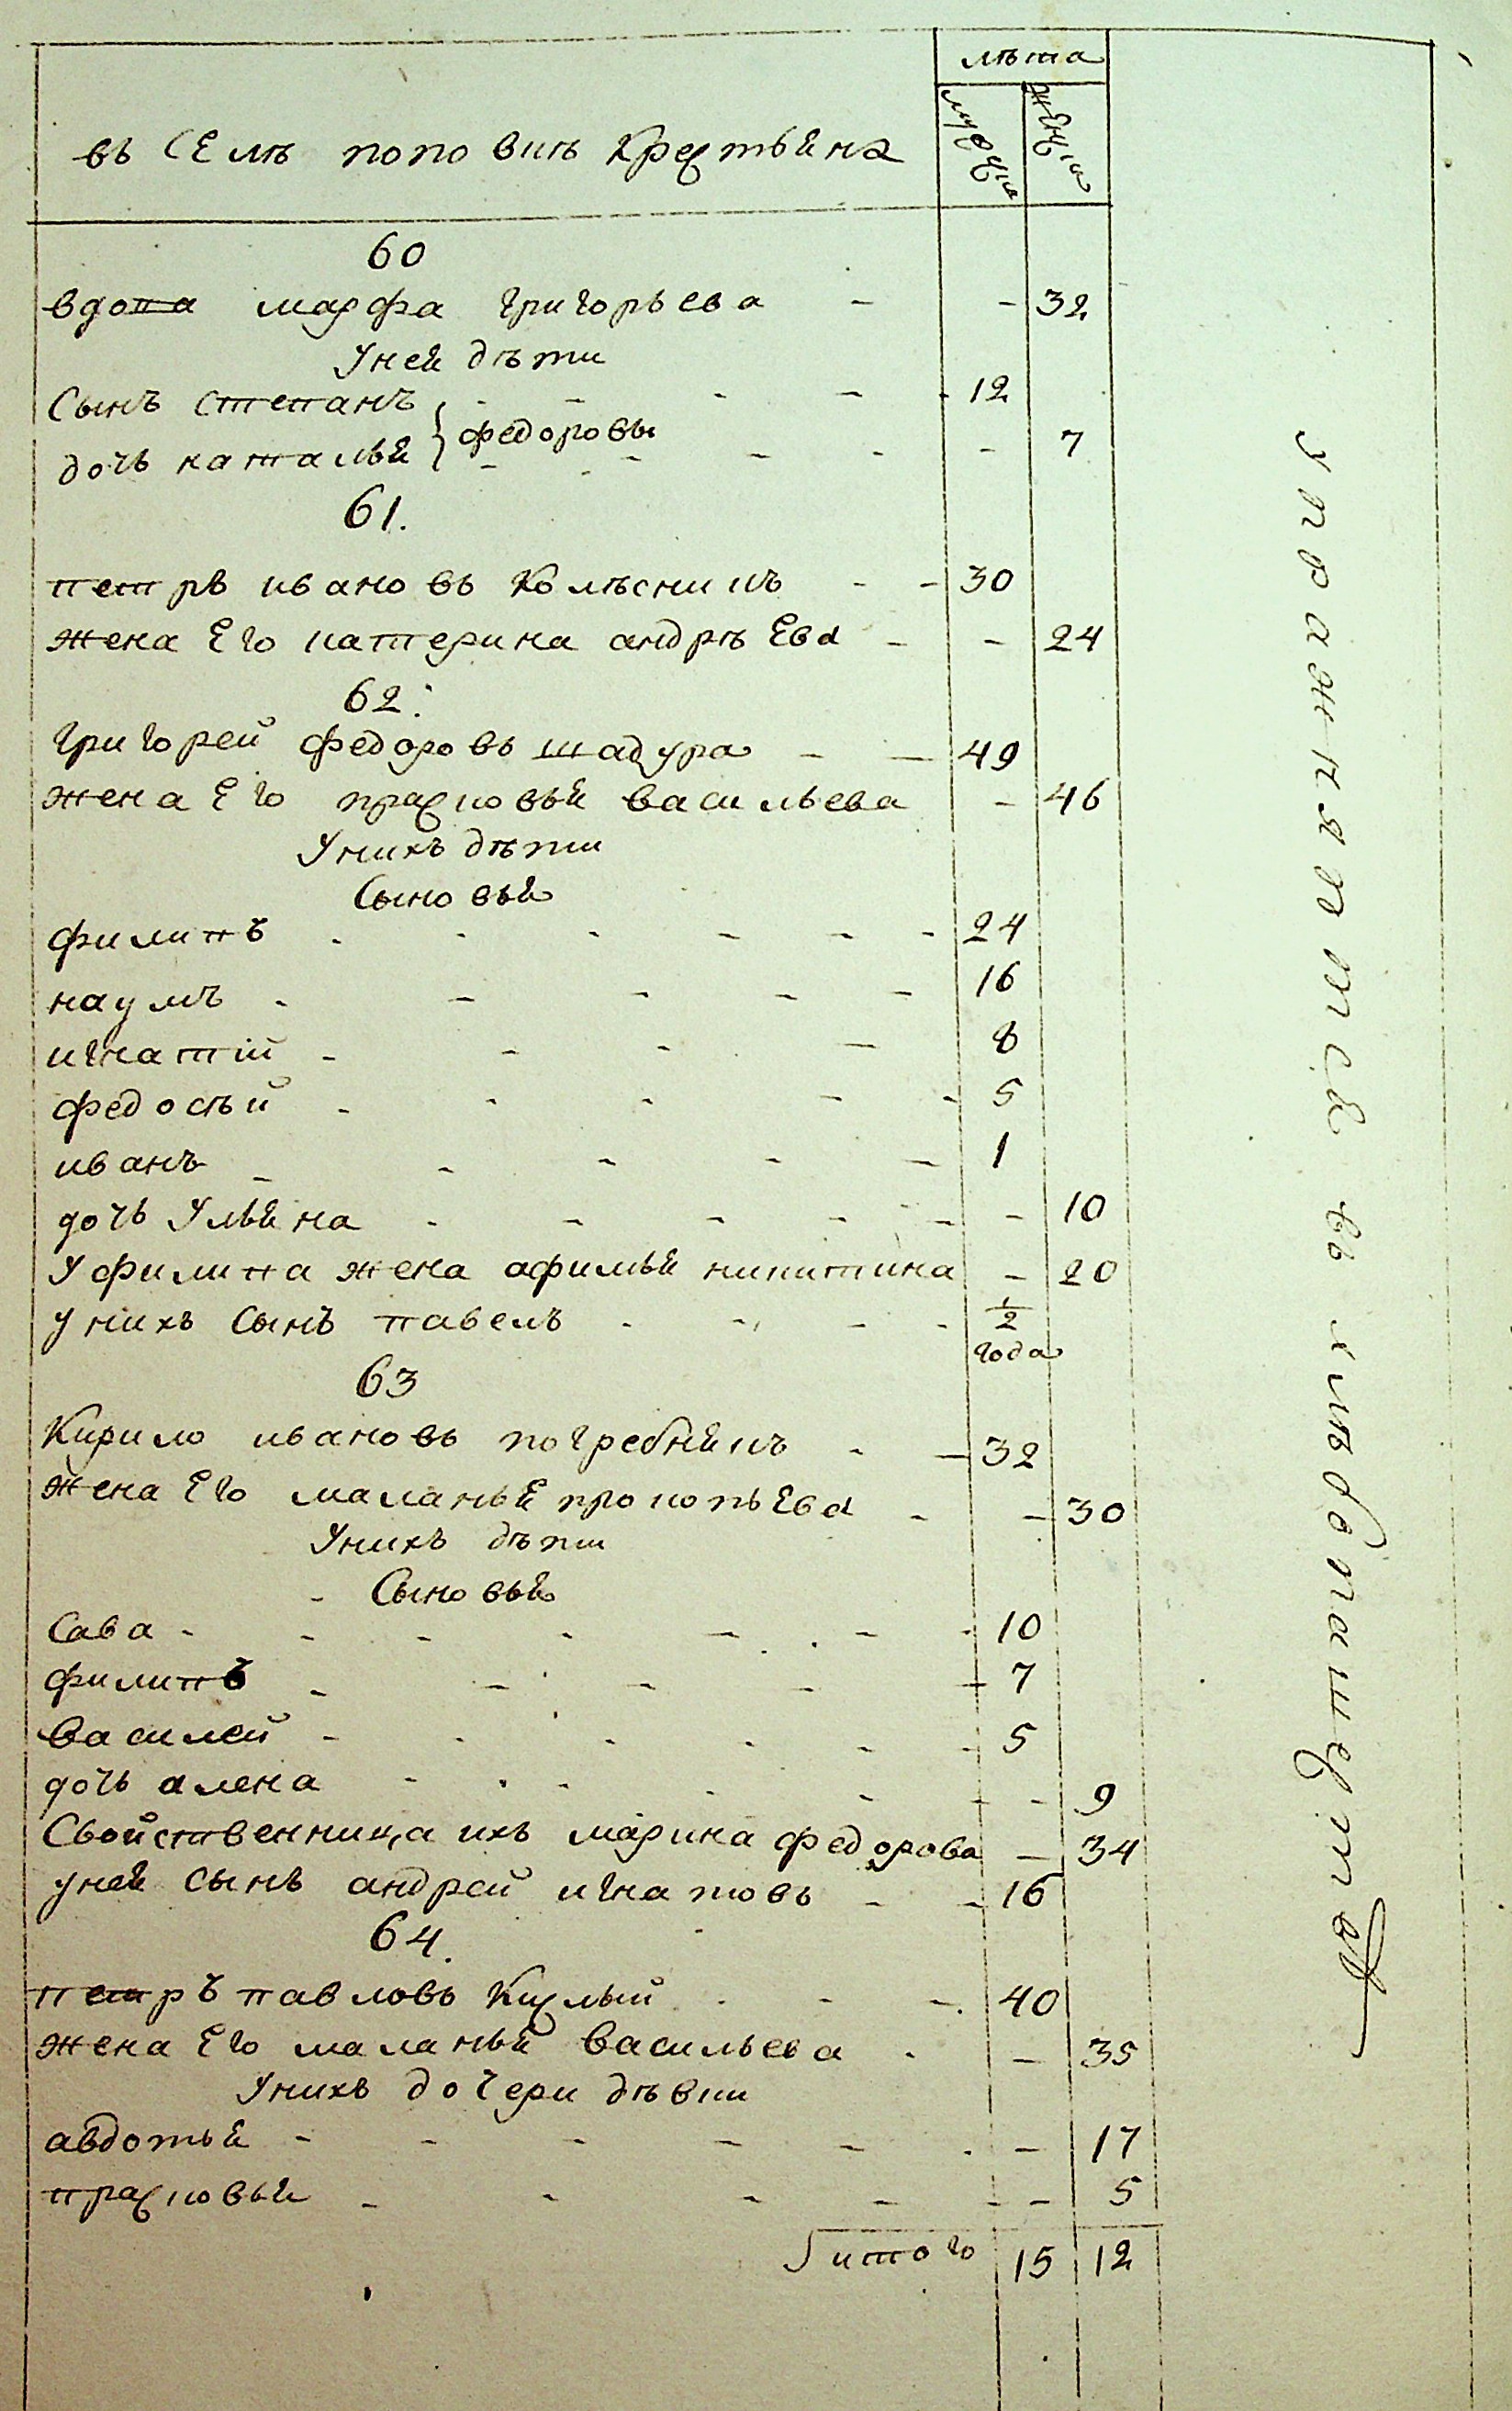 лѣта
въ селѣ поповкѣ крестьяна
мущин
женщин
60
вдова марфа григорьева - - 32
У ней дѣти
Сынъ степанъ } федоровы - - - 12
дочь наталья - - - - - 7
61.
петръ ивановъ колѣсникъ - - 30
жена его катерина андрѣева - - 24
62.
григорей федоровъ шадура - - 49
жена его прасковья васильева - 46
У нихъ дѣти
Сыновья
филипъ - - - - - - 24
наумъ - - - - - 16
игнатiй - - - - 8
федосѣй - - - - - 5
иванъ - - - - - 1
дочь Ульяна - - - - - - 10
У филипа жена афимья никитина - 20
у нихъ сынъ павелъ - - - - 1/2
года
63
Кирило ивановъ погребнякъ - - 32
жена его маланья прокопьева - - 30
У нихъ дѣти
Сыновья
Сава - - - - - - - 10
филипъ - - - - - 7
василей - - - - - - 5
дочь алена - - - - - - - 9
Свойственница ихъ марина федорова - 34
у ней сынъ андрей игнатовъ - - 16
64.
петръ павловъ Кислый - - - 40
жена его маланья васильева - - 35
У нихъ дочери дѣвки
авдотья - - - - - - - 17
прасковья - - - - - - 5
итого 15 12
упражняется въ хлебопашествѣ